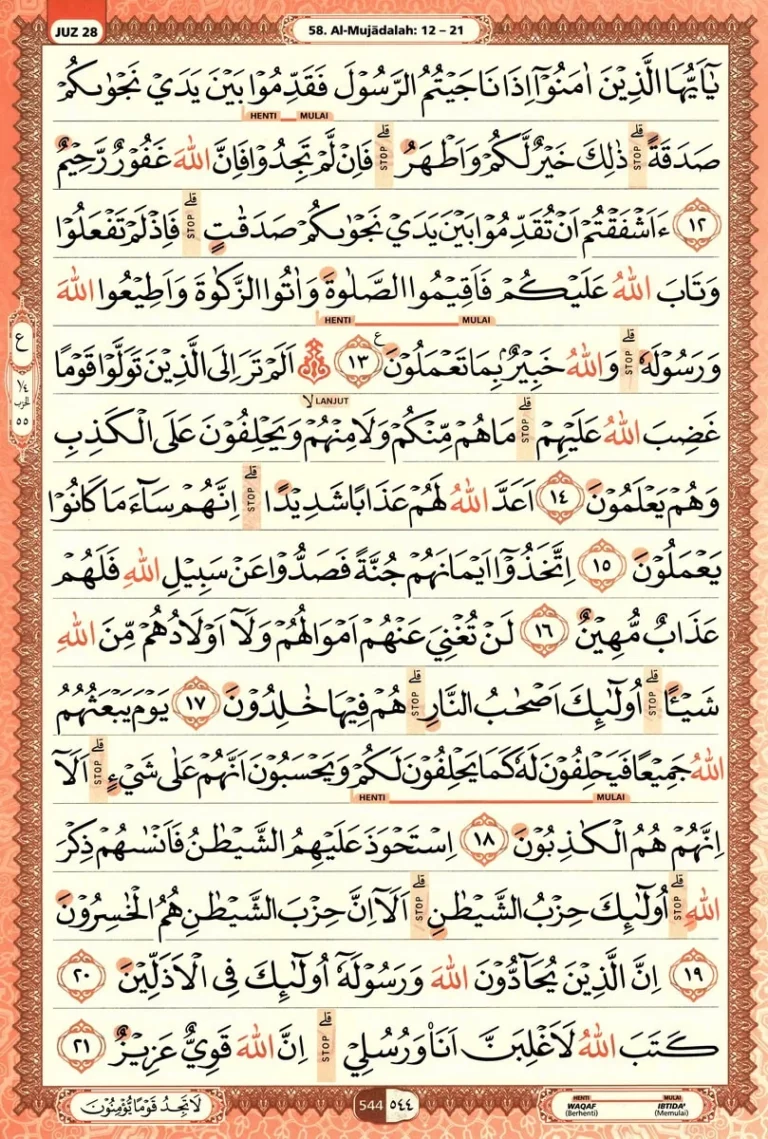 JUZ 28
58. Al-Mujādalah: 12 – 21
يٰٓاَيُّهَا الَّذِيْنَ اٰمَنُوْٓا اِذَا نَاجَيْتُمُ الرَّسُوْلَ فَقَدِّمُوْا بَيْنَ يَدَيْ نَجْوٰىكُمْ
HENTI MULAI
صَدَقَةً ۗ ذٰلِكَ خَيْرٌ لَّكُمْ وَاَطْهَرُ ۗ فَاِنْ لَّمْ تَجِدُوْا فَاِنَّ اللّٰهَ غَفُوْرٌ رَّحِيْمٌ
STOP STOP
١٢ ءَاَشْفَقْتُمْ اَنْ تُقَدِّمُوْا بَيْنَ يَدَيْ نَجْوٰىكُمْ صَدَقٰتٍ ۗ فَاِذْ لَمْ تَفْعَلُوْا
STOP
وَتَابَ اللّٰهُ عَلَيْكُمْ فَاَقِيْمُوا الصَّلٰوةَ وَاٰتُوا الزَّكٰوةَ وَاَطِيْعُوا اللّٰهَ
HENTI MULAI
وَرَسُوْلَهٗ ۗ وَاللّٰهُ خَبِيْرٌۢ بِمَا تَعْمَلُوْنَ ١٣ ع ۞ اَلَمْ تَرَ اِلَى الَّذِيْنَ تَوَلَّوْا قَوْمًا
STOP
LANJUT لا
غَضِبَ اللّٰهُ عَلَيْهِمْ ۗ مَا هُمْ مِّنْكُمْ وَلَا مِنْهُمْ وَيَحْلِفُوْنَ عَلَى الْكَذِبِ
STOP
وَهُمْ يَعْلَمُوْنَ ١٤ اَعَدَّ اللّٰهُ لَهُمْ عَذَابًا شَدِيْدًا ۗ اِنَّهُمْ سَاۤءَ مَا كَانُوْا
STOP
يَعْمَلُوْنَ ١٥ اِتَّخَذُوْٓا اَيْمَانَهُمْ جُنَّةً فَصَدُّوْا عَنْ سَبِيْلِ اللّٰهِ فَلَهُمْ
عَذَابٌ مُّهِيْنٌ ١٦ لَنْ تُغْنِيَ عَنْهُمْ اَمْوَالُهُمْ وَلَآ اَوْلَادُهُمْ مِّنَ اللّٰهِ
شَيْـًٔا ۗ اُولٰۤىِٕكَ اَصْحٰبُ النَّارِ ۗ هُمْ فِيْهَا خٰلِدُوْنَ ١٧ يَوْمَ يَبْعَثُهُمُ
STOP STOP
اللّٰهُ جَمِيْعًا فَيَحْلِفُوْنَ لَهٗ كَمَا يَحْلِفُوْنَ لَكُمْ وَيَحْسَبُوْنَ اَنَّهُمْ عَلٰى شَيْءٍ ۗ اَلَآ
STOP
HENTI MULAI
اِنَّهُمْ هُمُ الْكٰذِبُوْنَ ١٨ اِسْتَحْوَذَ عَلَيْهِمُ الشَّيْطٰنُ فَاَنْسٰىهُمْ ذِكْرَ
اللّٰهِ ۗ اُولٰۤىِٕكَ حِزْبُ الشَّيْطٰنِ ۗ اَلَآ اِنَّ حِزْبَ الشَّيْطٰنِ هُمُ الْخٰسِرُوْنَ
STOP STOP
١٩ اِنَّ الَّذِيْنَ يُحَاۤدُّوْنَ اللّٰهَ وَرَسُوْلَهٗٓ اُولٰۤىِٕكَ فِى الْاَذَلِّيْنَ ٢٠
كَتَبَ اللّٰهُ لَاَغْلِبَنَّ اَنَا۠ وَرُسُلِيْ ۗ اِنَّ اللّٰهَ قَوِيٌّ عَزِيْزٌ ٢١
STOP
ع
¼
الحزب
٥٥
لَا تَجِدُ قَوْمًا يُّؤْمِنُوْنَ
544 ٥٤٤
HENTI MULAI
WAQAF IBTIDA'
(Berhenti) (Memulai)